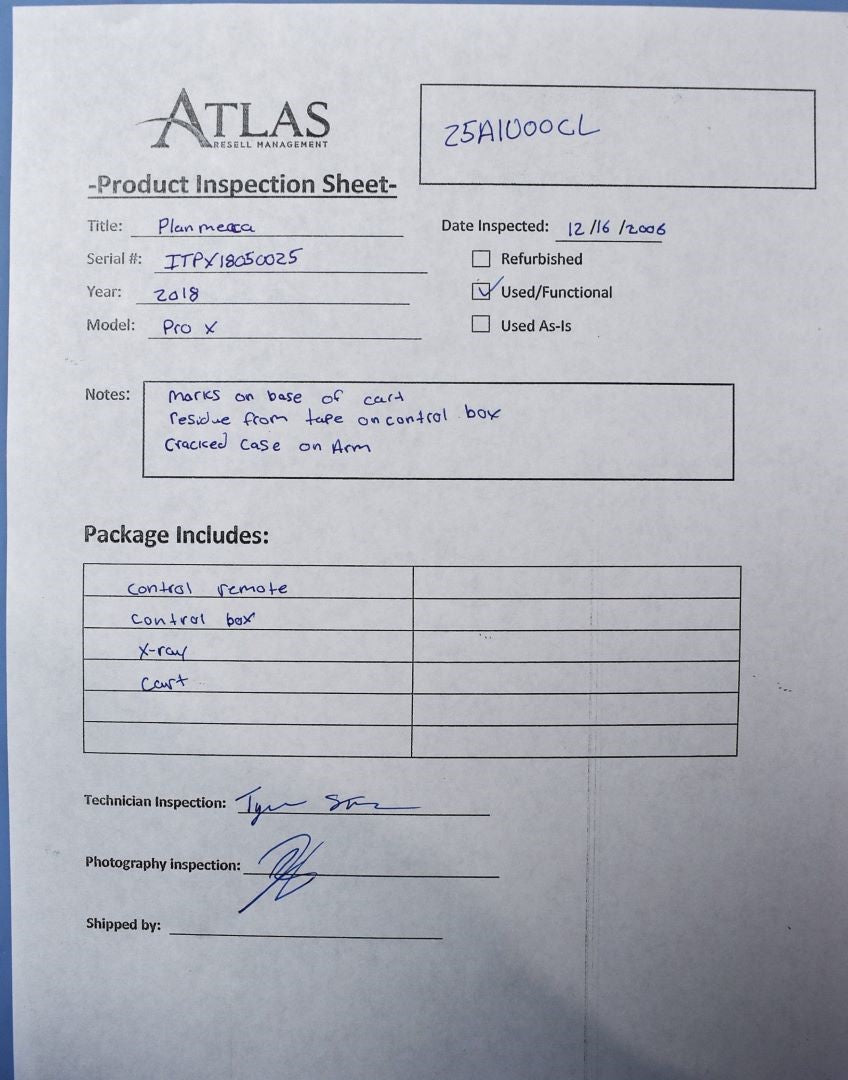 ATLAS
RESELL MANAGEMENT
25A1U00CL
-Product Inspection Sheet-
Title: Planmeca
Date Inspected: 12/16/2006
Serial #: ITPX18050025
Refurbished
Year: 2018
Used/Functional
Model: Pro X
Used As-Is
Notes: marks on base of cart
residue from tape on control box
Cracked case on Arm
Package Includes:
control remote
control box
X-ray
cart
Technician Inspection:
Photography inspection:
Shipped by: